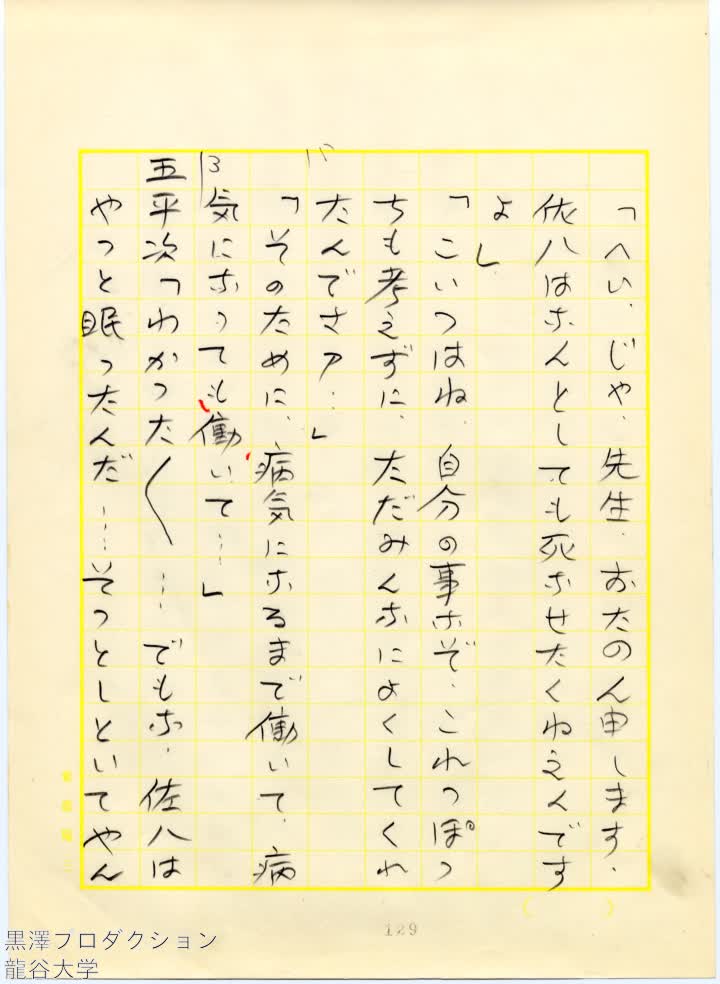 「へい、じゃ、先生、おたのん申します、
佐八はなんとしても死なせたくねえんです
よ」
「こいつはね、自分の事なぞ、これっぽっ
ちも考えずに、ただみんなによくしてくれ
たんでさァ…」
「そのために、病気になるまで働いて、病
気になっても働いて…」
五平次「わかったく…でもな、佐八は
やっと眠ったんだ……そっとしといてやん
129
黒澤プロダクション
龍谷大学